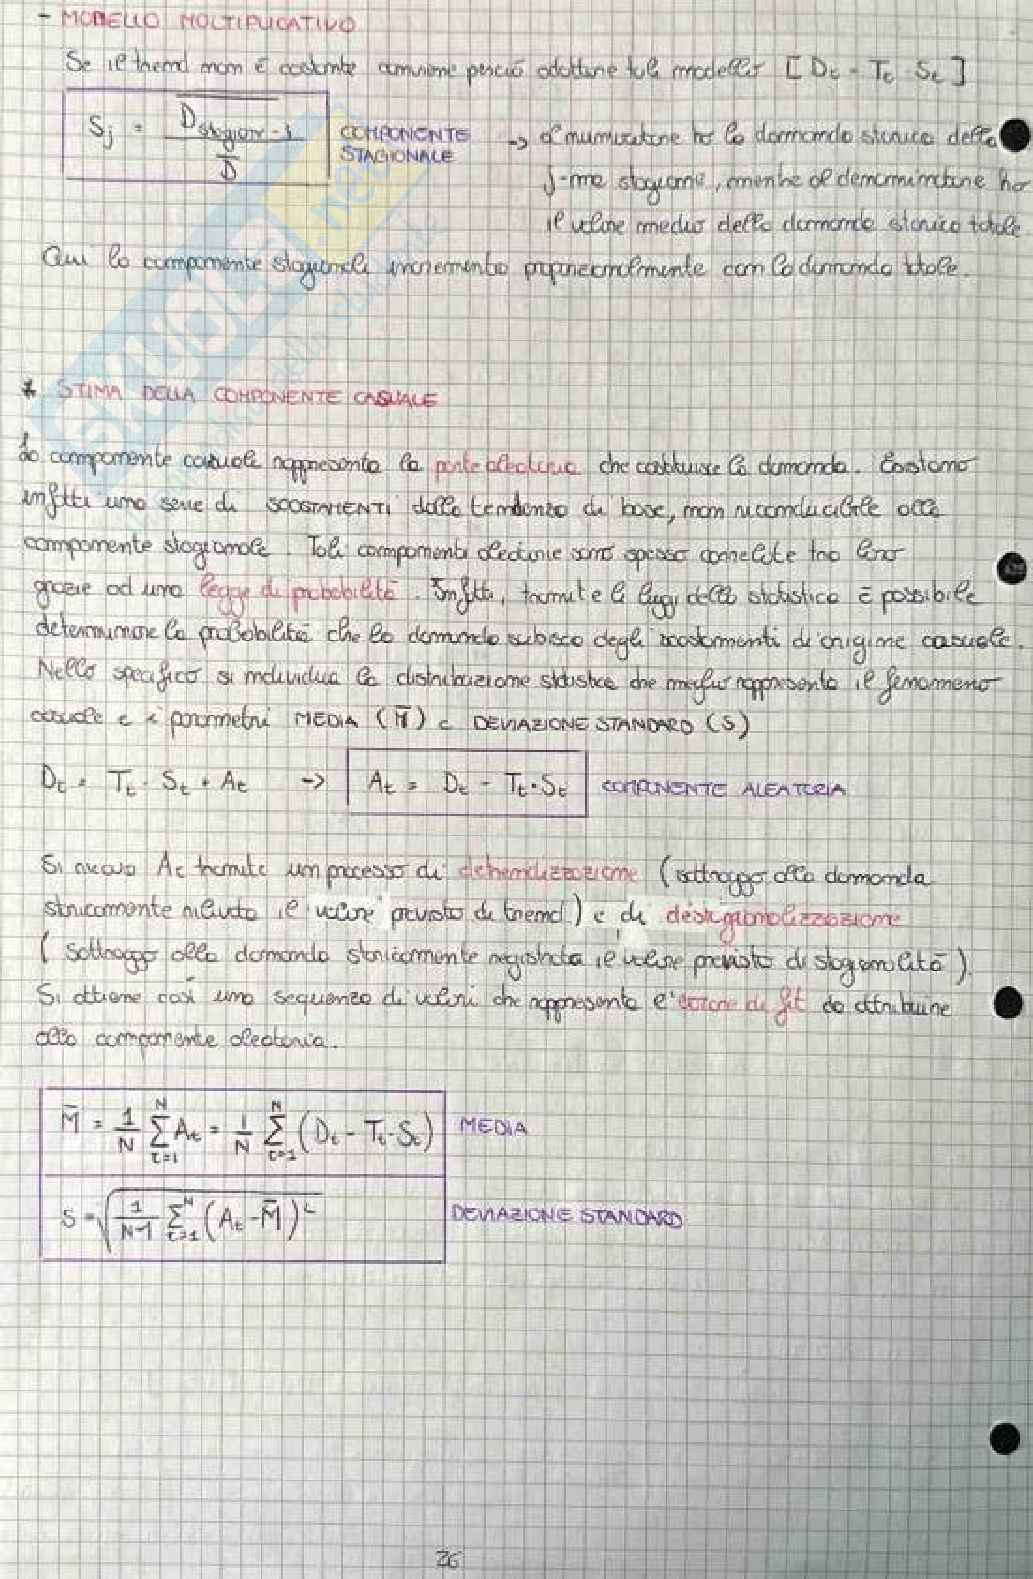 - MODELLO MOLTIPLICATIVO
Se il trend non è costante conviene perciò adottare tale modello [ Dt = Tt · St ]
Sj = D̅stagione-j / D̅ COMPONENTE STAGIONALE -> al numeratore ho la domanda storica della
j-ma stagione, mentre al denominatore ho
il valore medio della domanda storica totale.
Qui la componente stagionale incrementa proporzionalmente con la domanda totale.
* STIMA DELLA COMPONENTE CASUALE
La componente casuale rappresenta la parte aleatoria che costituisce la domanda. Esistono
infatti una serie di SCOSTAMENTI dalla tendenza di base, non riconducibile alla
componente stagionale. Tali componenti aleatorie sono spesso correlate tra loro
grazie ad una legge di probabilità. Infatti, tramite le leggi della statistica è possibile
determinare la probabilità che la domanda subisca degli scostamenti di origine casuale.
Nello specifico si individua la distribuzione statistica che meglio rappresenta il fenomeno
casuale e i parametri MEDIA (M̅) e DEVIAZIONE STANDARD (S)
Dt = Tt · St + At -> At = Dt - Tt · St COMPONENTE ALEATORIA
Si ricava At tramite un processo di detrendizzazione (sottraggo alla domanda
storicamente rilevata il valore previsto di trend) e di destagionalizzazione
( sottraggo alla domanda storicamente registrata il valore previsto di stagionalità).
Si ottiene così una sequenza di valori che rappresenta l'errore di fit da attribuire
alla componente aleatoria.
M̅ = 1/N ∑ᴺt=1 At = 1/N ∑ᴺt=1 (Dt - Tt · St) MEDIA
S = √( 1/N-1 ∑ᴺt=1 (At - M̅)² ) DEVIAZIONE STANDARD
26
SKUOLA.net